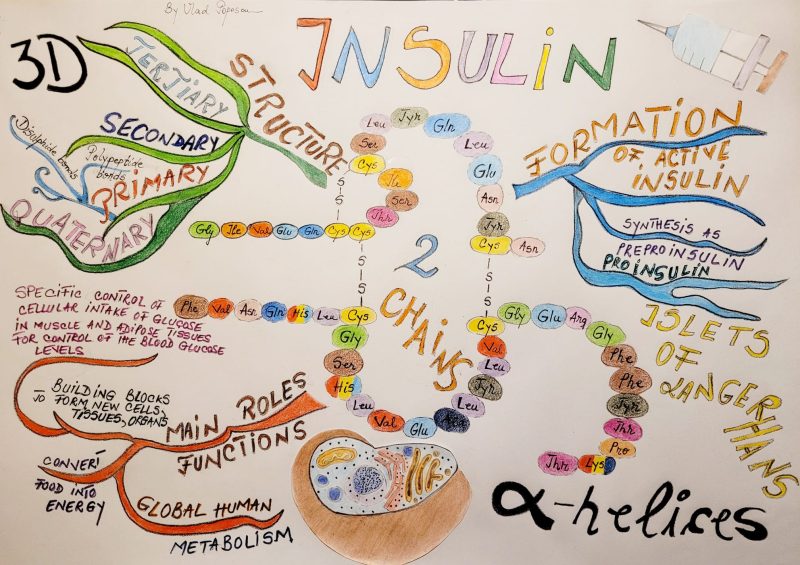 By Vlad
INSULIN
3D
STRUCTURE
TERTIARY
SECONDARY
Disulphide bonds
Polypeptide
bonds
PRIMARY
QUATERNARY
FORMATION
OF ACTIVE
INSULIN
SYNTHESIS AS
PREPROINSULIN
PROINSULIN
ISLETS
OF
LANGERHANS
Gly Ile Val Glu Gln Cys Cys
Thr
Ser
Ile
Cys
Ser
Leu
Tyr
Gln
Leu
Glu
Asn
Tyr
Cys Asn
S
S
S
S
S
S
2
CHAINS
Phe Val Asn Gln His Leu Cys
Gly
Ser
His
Leu
Val
Glu
Leu
Tyr
Leu
Val
Cys
Gly Glu Arg Gly
Phe
Phe
Tyr
Thr
Pro
Lys
Thr
SPECIFIC CONTROL OF
CELLULAR INTAKE OF GLUCOSE
IN MUSCLE AND ADIPOSE TISSUES
FOR CONTROL OF THE BLOOD GLUCOSE
LEVELS
MAIN ROLES
FUNCTIONS
BUILDING BLOCKS
TO FORM NEW CELLS,
TISSUES, ORGANS
CONVERT
FOOD INTO
ENERGY
GLOBAL HUMAN
METABOLISM
α-helices